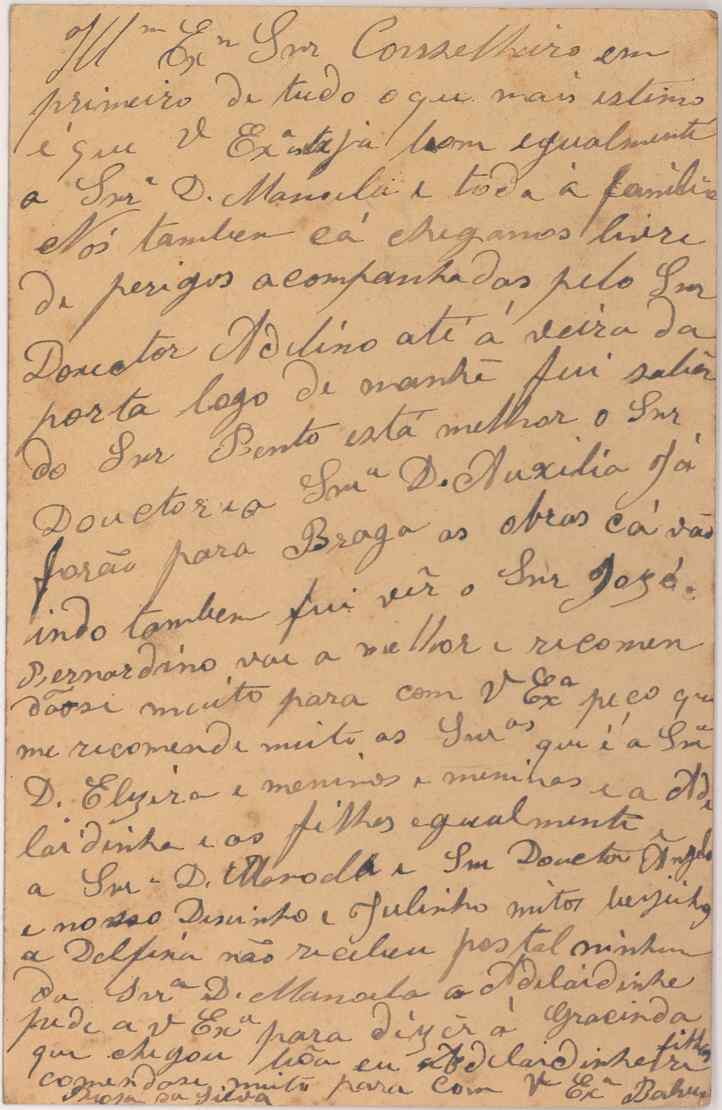 Illm Exm Snr Consselheiro em
primeiro de tudo o que mais estimo
é que V Exª steja bom egualmente
a Snrª D. Manoela e toda á familia
Nós tambem cá chegamos livre
de perigos acompanhadas pelo Snr
Douctor Adelino até á veira da
porta logo de manhê fui saber
do Snr Bento está melhor o Snr
Douctor e a Snrª D. Auxilia Já
forão para Braga as obras cá vão
indo tambem fui vêr o Snr José.
Bernardino vai a melhor e recomen
dãose muito para com V Exª peço que
me recomende muito as Snrªs que é a Snrª
D. Elzira e meninos e meninas e a Ade
laidinha e os filhos egualmente
a Snrª D. Manoela e Snr Douctor Angelo
e nosso e Julinho mitos beijinhos
a Delfina não recebeu postal ninhum
da Snrª D. Manoela a Adelaidinha
pede a V Exª para dizêr á Gracinda
que chegou bôa eu Adelaidinha e filhos re
comendase muito para com V Exª
Rosa da Silva